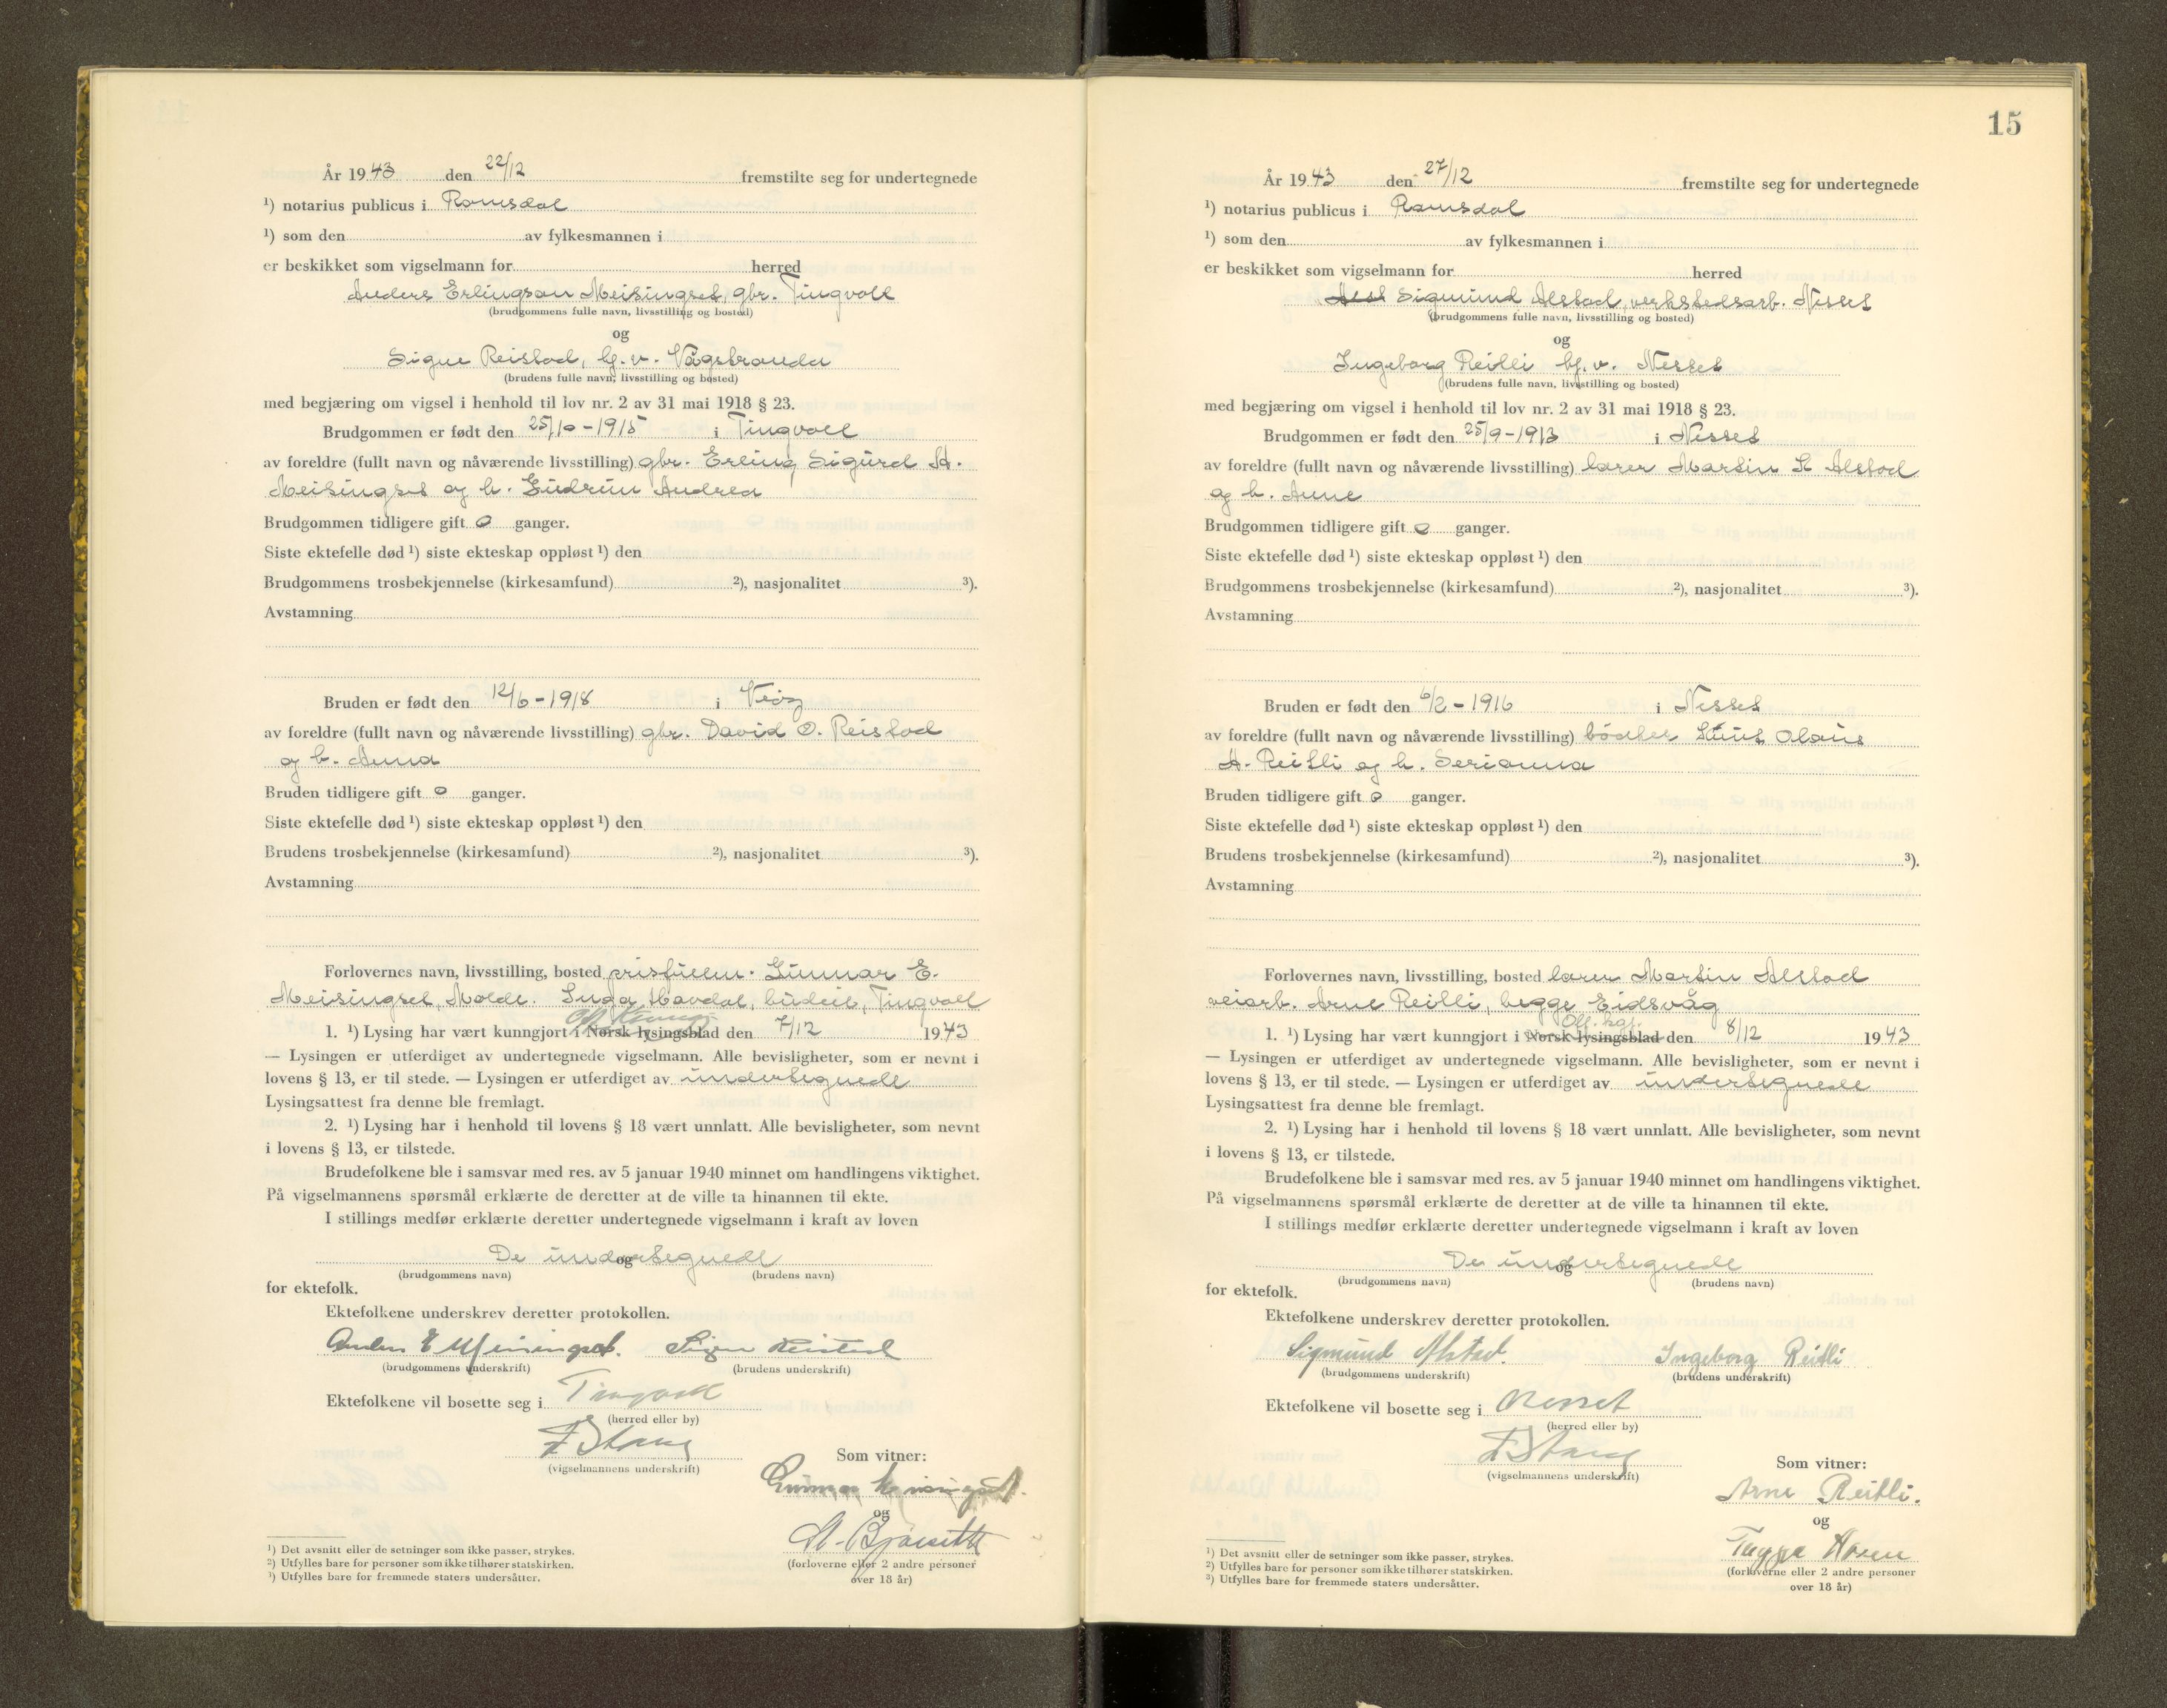 År 1943 den 22/12 fremstilte seg for undertegnede
¹) notarius publicus i Romsdal
¹) som den av fylkesmannen i
er beskikket som vigselmann for herred
Anders Erlingson Meisingset, gbr. Tingvoll
(brudgommens fulle navn, livsstilling og bosted)
og
Signe Reistad, hj. v. Vågstranda
(brudens fulle navn, livsstilling og bosted)
med begjæring om vigsel i henhold til lov nr. 2 av 31 mai 1918 § 23.
Brudgommen er født den 25/10-1915 i Tingvoll
av foreldre (fullt navn og nåværende livsstilling) gbr. Erling Sigurd A.
Meisingset og h. Gudrun Andrea
Brudgommen tidligere gift 0 ganger.
Siste ektefelle død ¹) siste ekteskap oppløst ¹) den
Brudgommens trosbekjennelse (kirkesamfund) ²), nasjonalitet ³).
Avstamning
Bruden er født den 12/6-1918 i Veøy
av foreldre (fullt navn og nåværende livsstilling) gbr. David O. Reistad
og h. Anna
Bruden tidligere gift 0 ganger.
Siste ektefelle død ¹) siste ekteskap oppløst ¹) den
Brudens trosbekjennelse (kirkesamfund) ²), nasjonalitet ³).
Avstamning
Forlovernes navn, livsstilling, bosted Gunnar E.
Meisingset, Molde. Inga Havdal, budeie, Tingvoll
Off. Kunngj.
1. ¹) Lysing har vært kunngjort i Norsk lysingsblad den 7/12 1943
— Lysingen er utferdiget av undertegnede vigselmann. Alle bevisligheter, som er nevnt i
lovens § 13, er til stede. — Lysingen er utferdiget av undertegnede
Lysingsattest fra denne ble fremlagt.
2. ¹) Lysing har i henhold til lovens § 18 vært unnlatt. Alle bevisligheter, som nevnt
i lovens § 13, er tilstede.
Brudefolkene ble i samsvar med res. av 5 januar 1940 minnet om handlingens viktighet.
På vigselmannens spørsmål erklærte de deretter at de ville ta hinannen til ekte.
I stillings medfør erklærte deretter undertegnede vigselmann i kraft av loven
De undertegnede
og
(brudgommens navn) (brudens navn)
for ektefolk.
Ektefolkene underskrev deretter protokollen.
Anders E Meisingset. Signe Reistad
(brudgommens underskrift) (brudens underskrift)
Ektefolkene vil bosette seg i Tingvoll
(herred eller by)
(vigselmannens underskrift)
Som vitner:
Gunnar Meisingset.
og
(forloverne eller 2 andre personer
over 18 år)
¹) Det avsnitt eller de setninger som ikke passer, strykes.
²) Utfylles bare for personer som ikke tilhører statskirken.
³) Utfylles bare for fremmede staters undersåtter.
15
År 1943 den 27/12 fremstilte seg for undertegnede
¹) notarius publicus i Romsdal
¹) som den av fylkesmannen i
er beskikket som vigselmann for herred
Sigmund Alstad, verkstedsarb. Nesset
(brudgommens fulle navn, livsstilling og bosted)
og
Ingeborg Reitli hj. v. Nesset
(brudens fulle navn, livsstilling og bosted)
med begjæring om vigsel i henhold til lov nr. 2 av 31 mai 1918 § 23.
Brudgommen er født den 25/9-1913 i Nesset
av foreldre (fullt navn og nåværende livsstilling) lærer Martin Alstad
og h. Anne
Brudgommen tidligere gift 0 ganger.
Siste ektefelle død ¹) siste ekteskap oppløst ¹) den
Brudgommens trosbekjennelse (kirkesamfund) ²), nasjonalitet ³).
Avstamning
Bruden er født den 6/2-1916 i Nesset
av foreldre (fullt navn og nåværende livsstilling) bødker Knut Olaus
A. Reitli og h. Serianna
Bruden tidligere gift 0 ganger.
Siste ektefelle død ¹) siste ekteskap oppløst ¹) den
Brudens trosbekjennelse (kirkesamfund) ²), nasjonalitet ³).
Avstamning
Forlovernes navn, livsstilling, bosted lærer Martin Alstad
veiarb. Arne Reitli, begge Eidsvåg
Off. kgj.
1. ¹) Lysing har vært kunngjort i Norsk lysingsblad den 8/12 1943
— Lysingen er utferdiget av undertegnede vigselmann. Alle bevisligheter, som er nevnt i
lovens § 13, er til stede. — Lysingen er utferdiget av undertegnede
Lysingsattest fra denne ble fremlagt.
2. ¹) Lysing har i henhold til lovens § 18 vært unnlatt. Alle bevisligheter, som nevnt
i lovens § 13, er tilstede.
Brudefolkene ble i samsvar med res. av 5 januar 1940 minnet om handlingens viktighet.
På vigselmannens spørsmål erklærte de deretter at de ville ta hinannen til ekte.
I stillings medfør erklærte deretter undertegnede vigselmann i kraft av loven
De undertegnede
og
(brudgommens navn) (brudens navn)
for ektefolk.
Ektefolkene underskrev deretter protokollen.
Sigmund Alstad. Ingeborg Reitli
(brudgommens underskrift) (brudens underskrift)
Ektefolkene vil bosette seg i Nesset
(herred eller by)
(vigselmannens underskrift)
Som vitner:
Arne Reitli.
og
(forloverne eller 2 andre personer
over 18 år)
¹) Det avsnitt eller de setninger som ikke passer, strykes.
²) Utfylles bare for personer som ikke tilhører statskirken.
³) Utfylles bare for fremmede staters undersåtter.